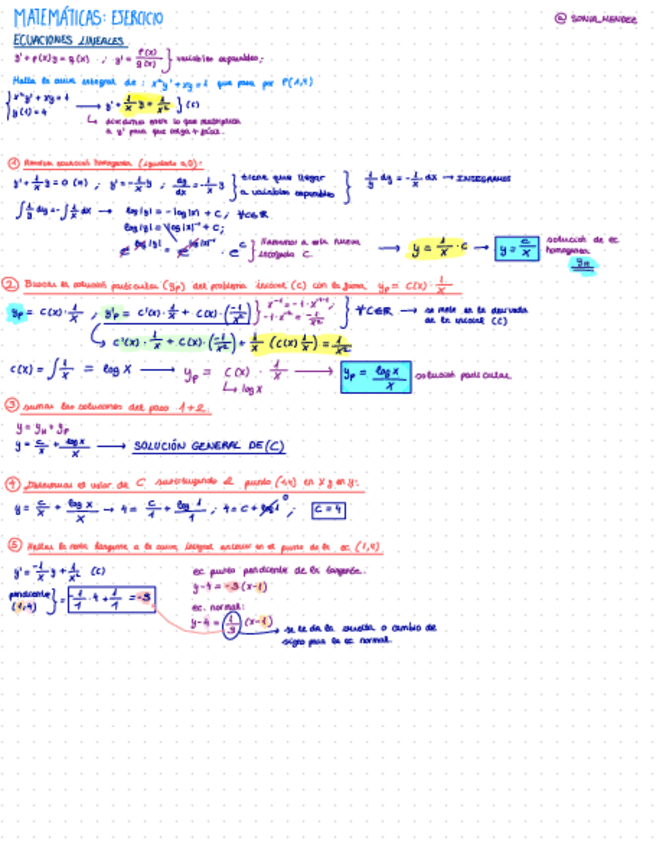 MATEMÁTICAS: EJERCICIO
@ SONIA_MENDEZ
ECUACIONES LINEALES
y' + p(x)y = q(x) , y' = p(x)/g(x) } variables separables.
Halla la curva integral de: x²y' + xy = 1 que pasa por P(1,4)
{ x²y' + xy = 1
y(1) = 4
→ y' + 1/x y = 1/x² } (c)
↳ dividimos entre lo que multiplica
a y' para que salga + fácil.
① Resolver ecuación homogénea (igualada a 0):
y' + 1/x y = 0 (H) , y' = -1/x y , dy/dx = -1/x y } tiene que llegar a variables separables } 1/y dy = -1/x dx → INTEGRAMOS
∫ 1/y dy = -∫ 1/x dx → log|y| = -log|x| + C, ∀C∈R
log|y| = log|x|⁻¹ + C;
e^log|y| = e^log|x|⁻¹ · e^C } llamamos a esta nueva incógnita C → y = 1/x · c → y = c/x solución de ec homogénea y_H
② Buscar la solución particular (yp) del problema inicial (c) con la forma yp = C(x) · 1/x
yp = C(x) · 1/x , y'p = C'(x) · 1/x + C(x) · (-1/x²) } x⁻¹ = -1 · x⁻¹⁻¹; -1 · x⁻² = -1/x² } ∀C∈R → se mete en la derivada de la inicial (c)
↳ C'(x) · 1/x + C(x) · (-1/x²) + 1/x (C(x) 1/x) = 1/x²
C(x) = ∫ 1/x = log x → yp = C(x) · 1/x → yp = log x / x solución particular
↳ log x
③ sumar las soluciones del paso 1+2.
y = yH + yp
y = c/x + log x / x → SOLUCIÓN GENERAL DE (C)
④ Determinar el valor de C sustituyendo el punto (1,4) en x y en y:
y = c/x + log x / x → 4 = c/1 + log 1 / 1 ; 4 = c + log 1 0 ; C = 4
⑤ Hallar la recta tangente a la curva integral anterior en el punto de la ec. (1,4)
y' = -1/x y + 1/x² (c)
pendiente (1,4) } = -1/1 · 4 + 1/1 = -3
ec. punto pendiente de la tangente.
y-4 = -3(x-1)
ec. normal:
y-4 = 1/3 (x-1) → se le da la vuelta o cambio de
signo para la ec normal.